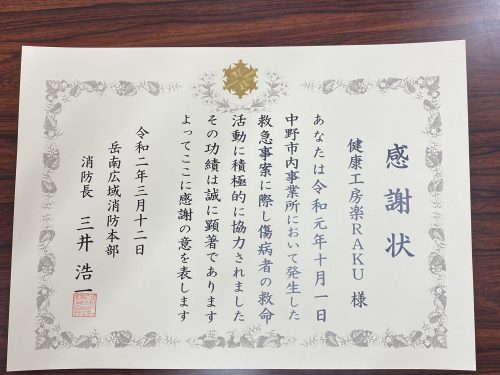 感謝状
健康工房楽RAKU 様
あなたは令和元年十月一日
中野市内事業所において発生した
救急事案に際し傷病者の救命
活動に積極的に協力されました
その功績は誠に顕著であります
よってここに感謝の意を表します
令和二年三月十二日
岳南広域消防本部
消防長 三井 浩一